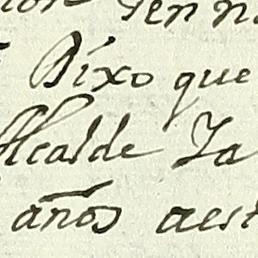 Dixo que
Alcalde Ja
años aest